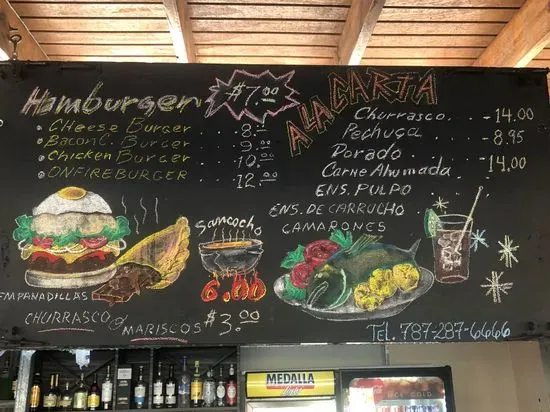 Hamburger $7.00
CHeese Burger . . . 8.00
Bacon C. Burger . . . 9.00
Chicken Burger . . . 10.00
ONFIREBURGER . . . 12.00
EMPANADILLAS
CHURRASCO o MARISCOS $3.00
Sancocho
6.00
A LA CARTA
Churrasco - 14.00
Pechuga - 8.95
Dorado - 14.00
Carne Ahumada
ENS. PULPO
ENS. DE CARRUCHO
CAMARONES
Tel. 787-287-6666
MEDALLA
Light
ICE COLD